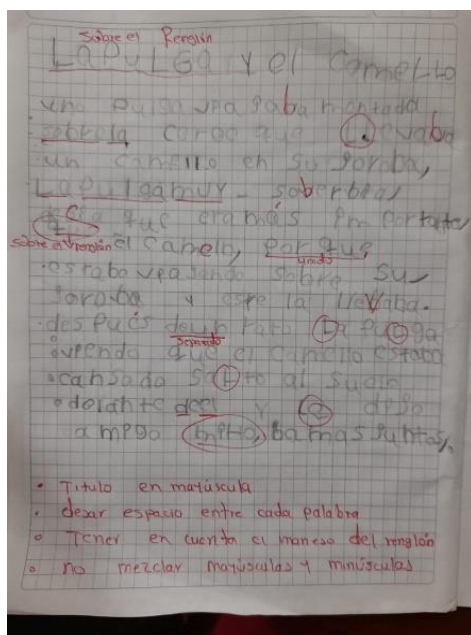 sobre el Renglón
LA PULGA Y el Camello
una pulga viajaba montada
sobrela carga que LLevaba
un camello en su Joroba,
LaPulgamuy soberbia,
que era más Importante
sobre el renglón el Camello, porque,
unido
estaba viajando sobre su
Joroba y este la llevaba.
despúes deun rato La PuLga
separado
que el camello estaba
cansado saLto al suelo
delante del y Le dijo
amigo mío, bamas Juntas,
• Titulo en mayúscula
• dejar espacio entre cada palabra
• Tener en cuenta el manejo del renglón
• no mezclar mayúsculas y minúsculas